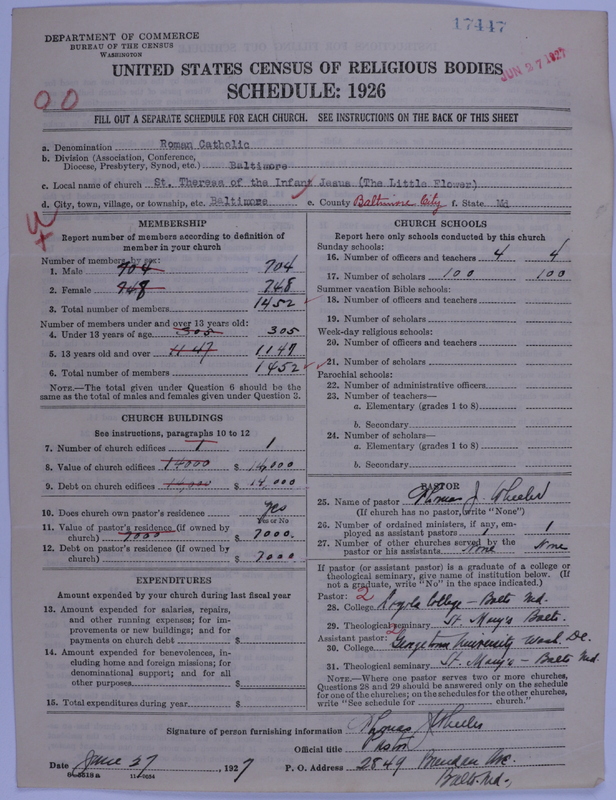 17447
DEPARTMENT OF COMMERCE
BUREAU OF THE CENSUS
WASHINGTON
JUN 27 1927
UNITED STATES CENSUS OF RELIGIOUS BODIES
SCHEDULE: 1926
00
FILL OUT A SEPARATE SCHEDULE FOR EACH CHURCH. SEE INSTRUCTIONS ON THE BACK OF THIS SHEET
a. Denomination Roman Catholic
b. Division (Association, Conference,
Diocese, Presbytery, Synod, etc.) Baltimore
c. Local name of church St. Theresa of the Infant Jesus (The Little Flower)
d. City, town, village, or township, etc. Baltimore e. County Baltimore City f. State Md
MEMBERSHIP
Report number of members according to definition of
member in your church
Number of members by sex:
1. Male 704 704
2. Female 748 748
3. Total number of members 1452
Number of members under and over 13 years old:
4. Under 13 years of age 305 305
5. 13 years old and over 1147 1147
6. Total number of members 1452
NOTE.—The total given under Question 6 should be
same as the total of males and females given under Question 3.
CHURCH BUILDINGS
See instructions, paragraphs 10 to 12
7. Number of church edifices 1 1
8. Value of church edifices 14000 $ 14,000
9. Debt on church edifices 14,000 $ 14,000
10. Does church own pastor's residence yes
Yes or No
11. Value of pastor's residence (if owned by
church) 7000 $ 7000.
12. Debt on pastor's residence (if owned by
church) $ 7000
EXPENDITURES
Amount expended by your church during last fiscal year
13. Amount expended for salaries, repairs,
and other running expenses; for im-
provements or new buildings; and for
payments on church debt $
14. Amount expended for benevolences, in-
cluding home and foreign missions; for
denominational support; and for all
other purposes $
15. Total expenditures during year $
CHURCH SCHOOLS
Report here only schools conducted by this church
Sunday schools:
16. Number of officers and teachers 4 4
17. Number of scholars 100 100
Summer vacation Bible schools:
18. Number of officers and teachers
19. Number of scholars
Week-day religious schools:
20. Number of officers and teachers
21. Number of scholars
Parochial schools:
22. Number of administrative officers
23. Number of teachers—
a. Elementary (grades 1 to 8)
b. Secondary
24. Number of scholars—
a. Elementary (grades 1 to 8)
b. Secondary
PASTOR
25. Name of pastor Thomas J. Wheeler
(If church has no pastor, write "None")
26. Number of ordained ministers, if any, em-
ployed as assistant pastors 1 1
27. Number of other churches served by the
pastor or his assistants None None
If pastor (or assistant pastor) is a graduate of a college or
theological seminary, give name of institution below. (If
not a graduate, write "No" in the space indicated.)
Pastor: 2
28. College Loyola College - Balto Md.
29. Theological seminary St. Mary's Balto.
Assistant pastor: 2
30. College Georgetown University Wash. DC.
31. Theological seminary St. Mary's - Balto Md.
NOTE.—Where one pastor serves two or more churches,
Questions 28 and 29 should be answered only on the schedule
for one of the churches; on the schedules for the other churches,
write "See schedule for church."
Signature of person furnishing information Thomas J Wheeler
Official title Pastor
Date June 27, 1927 P. O. Address 2849 Brendan Ave.
Balto. Md.,
11-9034